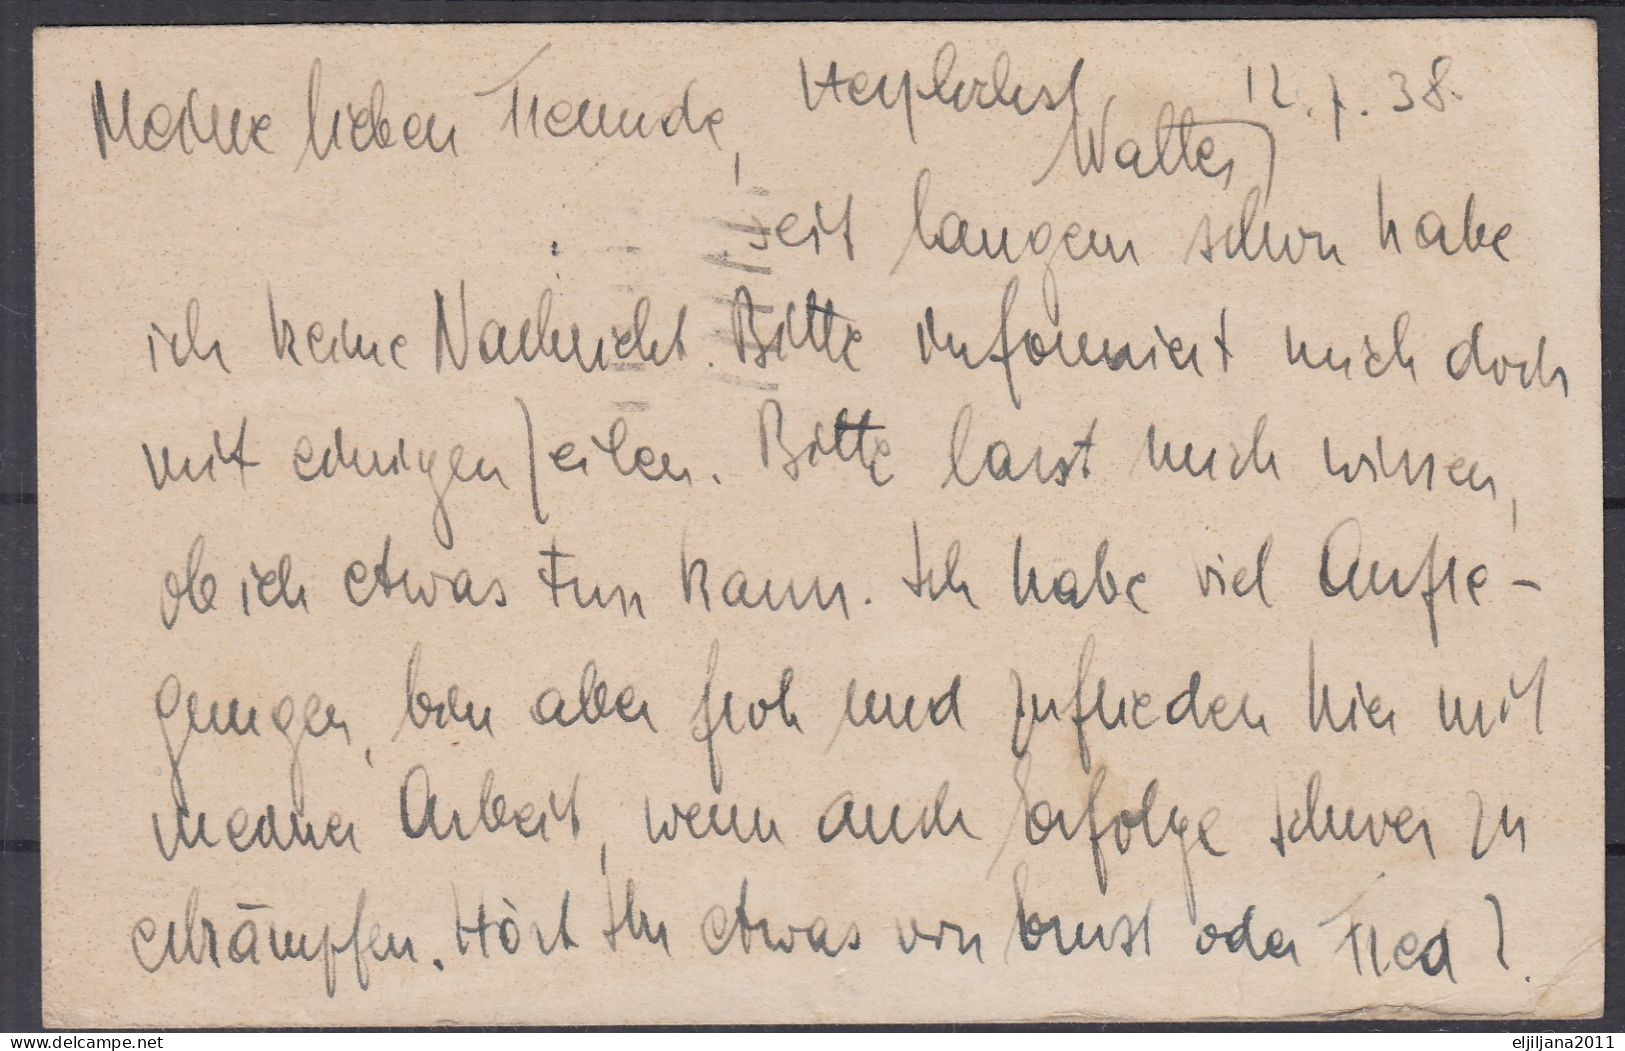 Meine lieben Freunde, Herzlichst 12.7.38.
Walter
seit langem schon habe
ich keine Nachricht. Bitte informiert mich doch
mit einigen Zeilen. Bitte lasst mich wissen,
ob ich etwas tun kann. Ich habe viel Aufre-
gungen, bin aber froh und zufrieden hier mit
meiner Arbeit, wenn auch Erfolge schwer zu
erkämpfen. Hört Ihr etwas von Ernst oder Fred?
delcampe.net
eljiljana2011